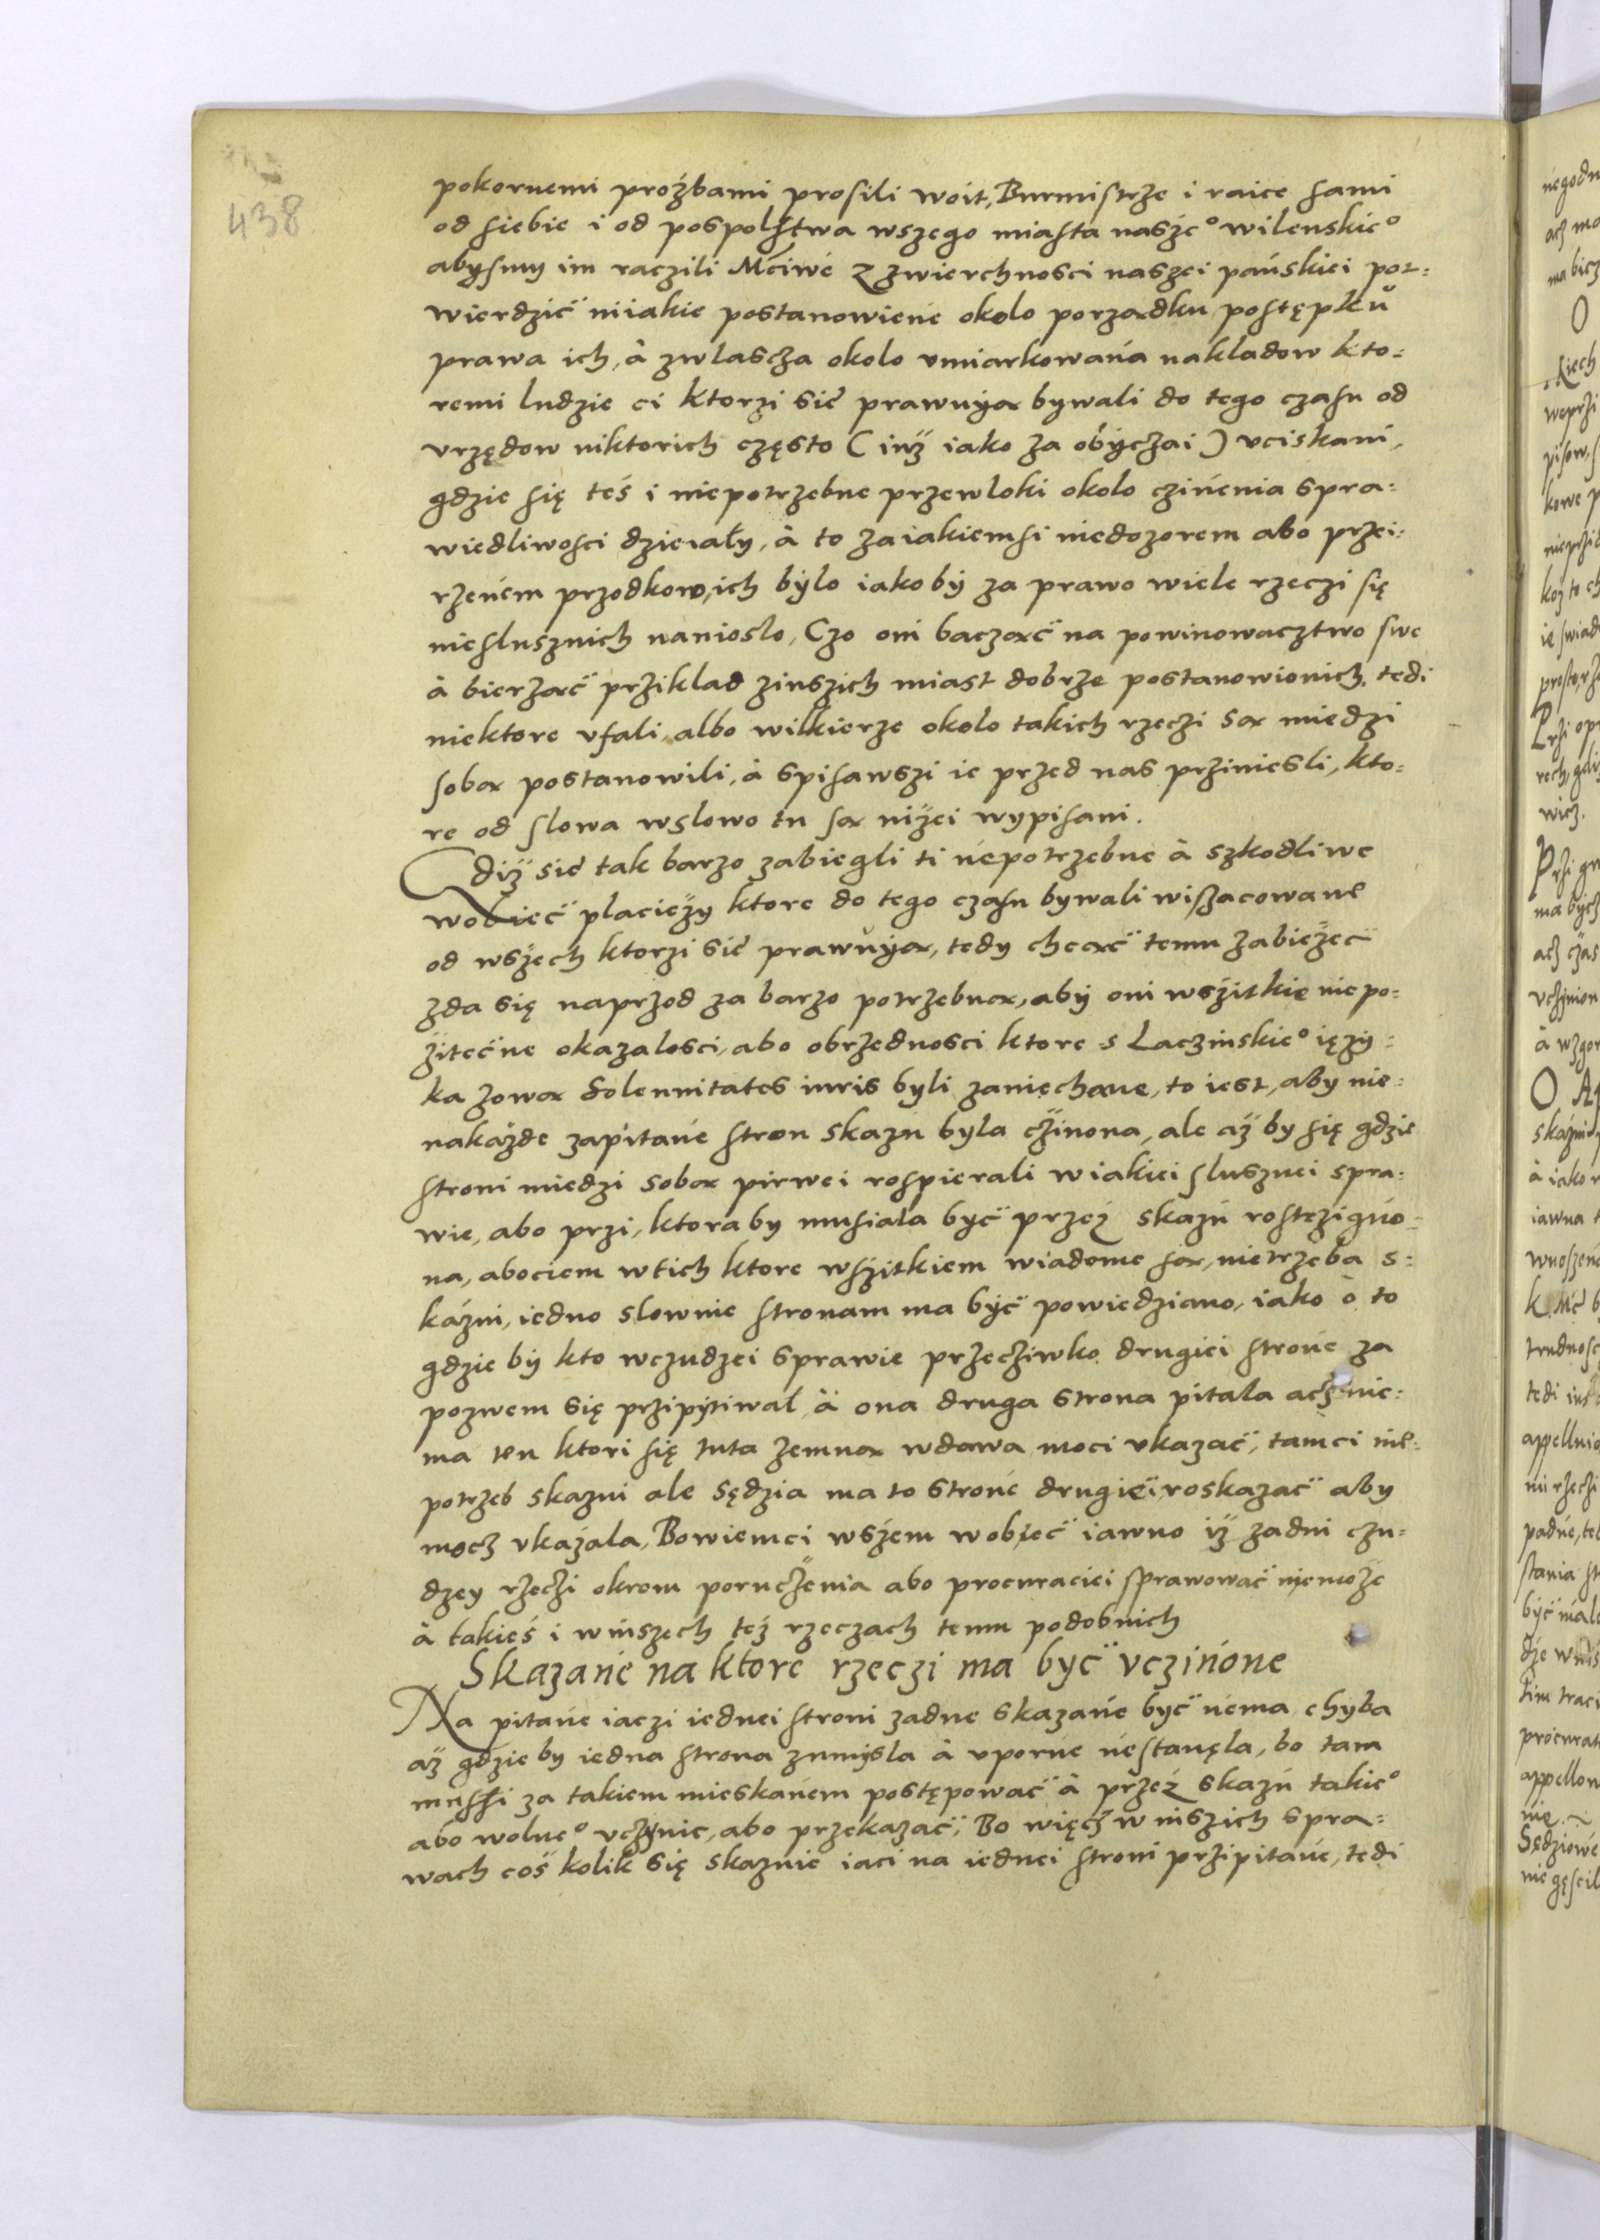 438
pokornemi proźbami prosili woit, Burmistrze i raice sami
od siebie i od pospolstwa wszego miasta nasze° wilenskie°
abysmy im raczili Mćiwé z zwierchnosci naszei pańskiei pot=
wierdzić niiakie postanowiené okolo porzadku postępku
prawa ich, à zwlascza okolo vmiarkowańa nakladow kto=
remi ludzie ci ktorzi sié prawuya bywali do tego czasu od
vrzędow niktorich często (iuż iako za obyczai) vciskani,
gdzie się teś i niepotrzebne przewloki okolo czinénia spra=
wiedliwosci dzieiały, à to zaiakiemsi niedozorem abo przei=
rzeném przodkow, ich bylo iakoby za prawo wiele rzeczi się
nieslusznich nanioslo, Czo oni baczać na powinowacztwo swe
à bierzać prziklad zinszich miast dobrze postanowionich, tedi
niektore vfali, albo wilkierze okolo takich rzeczi sa miedzi
soba postanowili, à spisawszi ie przed nas prziniesli, kto=
re od slowa wslowo tu sa niżei wypisani.
Gdiż sié tak barzo zabiegli ti népotrzebne à szkodliwe
wobieć placieży ktore do tego czasu bywali wiszacowane
od wszech ktorzi sié prawuya, tedy chcać temu zabieżeć
zda się naprzod za barzo potrzebna, aby oni wszitkie niepo=
żitećne okazalosci, abo obrzednosci ktore s Laczinskie° ięzy=
ka zowa Solennitates iuris byli zaniechane, to iest, aby nie=
nakażde zapitańe stron skazn byla czinona, ale aż by się gdzie
stroni miedzi soba pirwei rospierali w iakiei slusznei spra=
wie, abo przi, ktora by musiala być przez skazń rostrzigńo=
na, abociem wtich ktore wszitkiem wiadome sa, nietrzeba s=
kázni, iedno slownie stronam ma być powiedziano, iako ò to
gdzie by kto wczudzei sprawie przecziwko drugiei stroné za
pozwem się przipytiwal, à ona druga strona pitala aczż nie=
ma ten ktori się tuta zemna wdawa moci vkazać, tamci nie=
potrzeb skazni ale sędzia ma to stroné drugiei, roskazać aby
mocz vkazala, Bowiemci wszem wobieć iawno iż żadni czu=
dzey rzeczi okrom poruczenia abo procuraciei sprawować niemoże
à takieś i winszech też rzeczach temu podobnich
Skazanie na ktore rzeczi ma być vczinóne
Na pitańe iaczi iednei stroni żadne skazańe być nému chyba
aż gdzie by iedna strona znmysla à vporne nestanęla, bo tam
mussi za takiem mieskaném postępować à przez skazń takie°
abo wolne° vczynic, abo przekazać, Bo więcz w inszich spra=
wach coś kolik się skaznie iaci na iednei stroni przipitańe, tedi